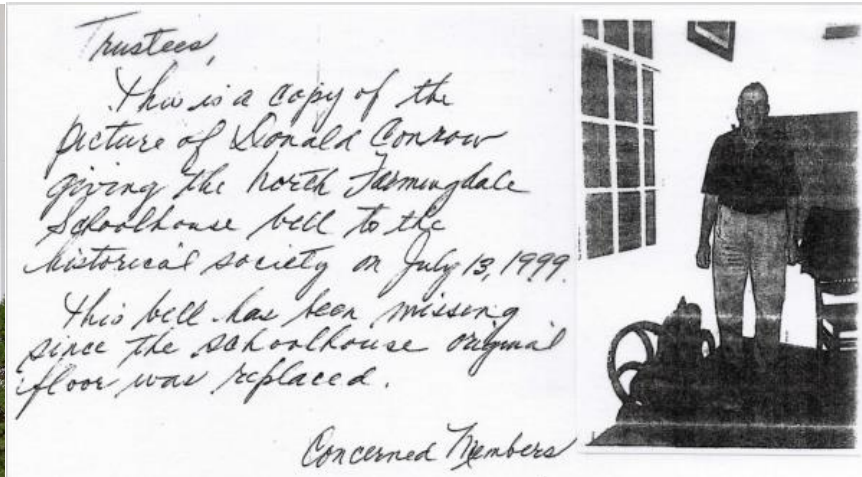 Trustees,
This is a copy of the
picture of Donald Conrow
giving the North Farmingdale
Schoolhouse bell to the
historical society on July 13, 1999.
This bell has been missing
since the schoolhouse original
floor was replaced.
Concerned Members